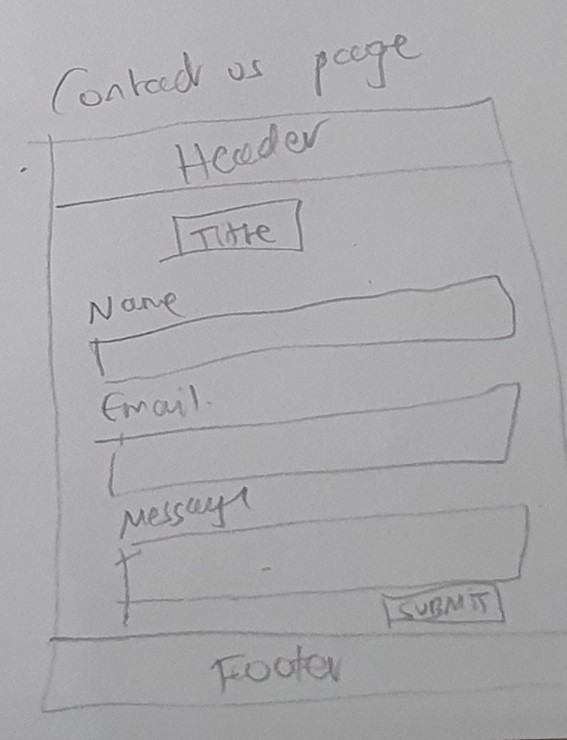 Contact us page
Header
Title
Name
Email.
Message
SUBMIT
Footer